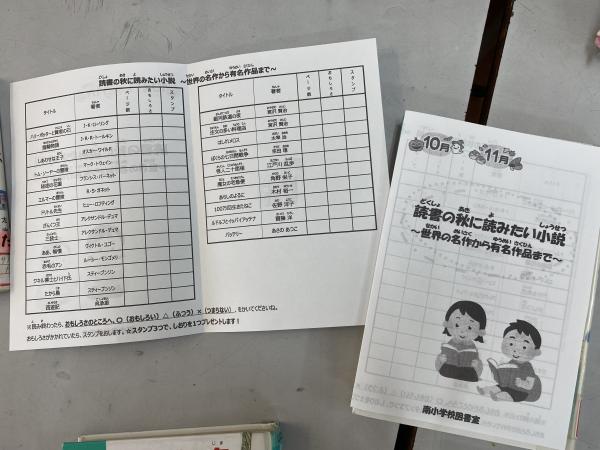 読書の秋に読みたい小説　～世界の名作から有名作品まで～
タイトル　著者　ページ数　おもしろさ　スタンプ
ハリーポッターと賢者の石　J・K・ローリング
指輪物語　J・R・R・トールキン
しあわせな王子　オスカー・ワイルド
トム・ソーヤーの冒険　マーク・トウェイン
秘密の花園　フランシス・バーネット
エルマーの冒険　R・S・ガネット
ドリトル先生　ヒュー・ロフティング
がんくつ王　アレクサンドル・デュマ
三銃士　アレクサンドル・デュマ
ああ、無情　ヴィクトル・ユゴー
赤毛のアン　ルーシー・モンゴメリ
ジキル博士とハイド氏　スティーブンソン
たから島　スティーブンソン
西遊記　呉承恩
※読み終わったら、おもしろさのところへ、〇（おもしろい）△（ふつう）×（つまらない）、をかいてくださいね。
おもしろさがかかれていたら、スタンプをおします。☆スタンプ３つで、しおりを１つプレゼントします！
タイトル　著者　ページ数　おもしろさ　スタンプ
銀河鉄道の夜　宮沢 賢治
注文の多い料理店　宮沢 賢治
はしれメロス　太宰 治
ぼくらの七日間戦争　宗田 理
怪人二十面相　江戸川 乱歩
魔女の宅急便　角野 栄子
あらしのよるに　木村 裕一
100万回生きたねこ　佐野 洋子
ルドルフとイッパイアッテナ　斉藤 洋
バッテリー　あさの あつこ
10月
11月
読書の秋に読みたい小説
～世界の名作から有名作品まで～
南小学校図書室